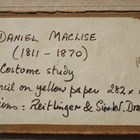 DANIEL MACLISE
(1811 - 1870)
Costume study
ncil on yellow paper 282 ×
ions: Reitlinger & Sir W. Dra